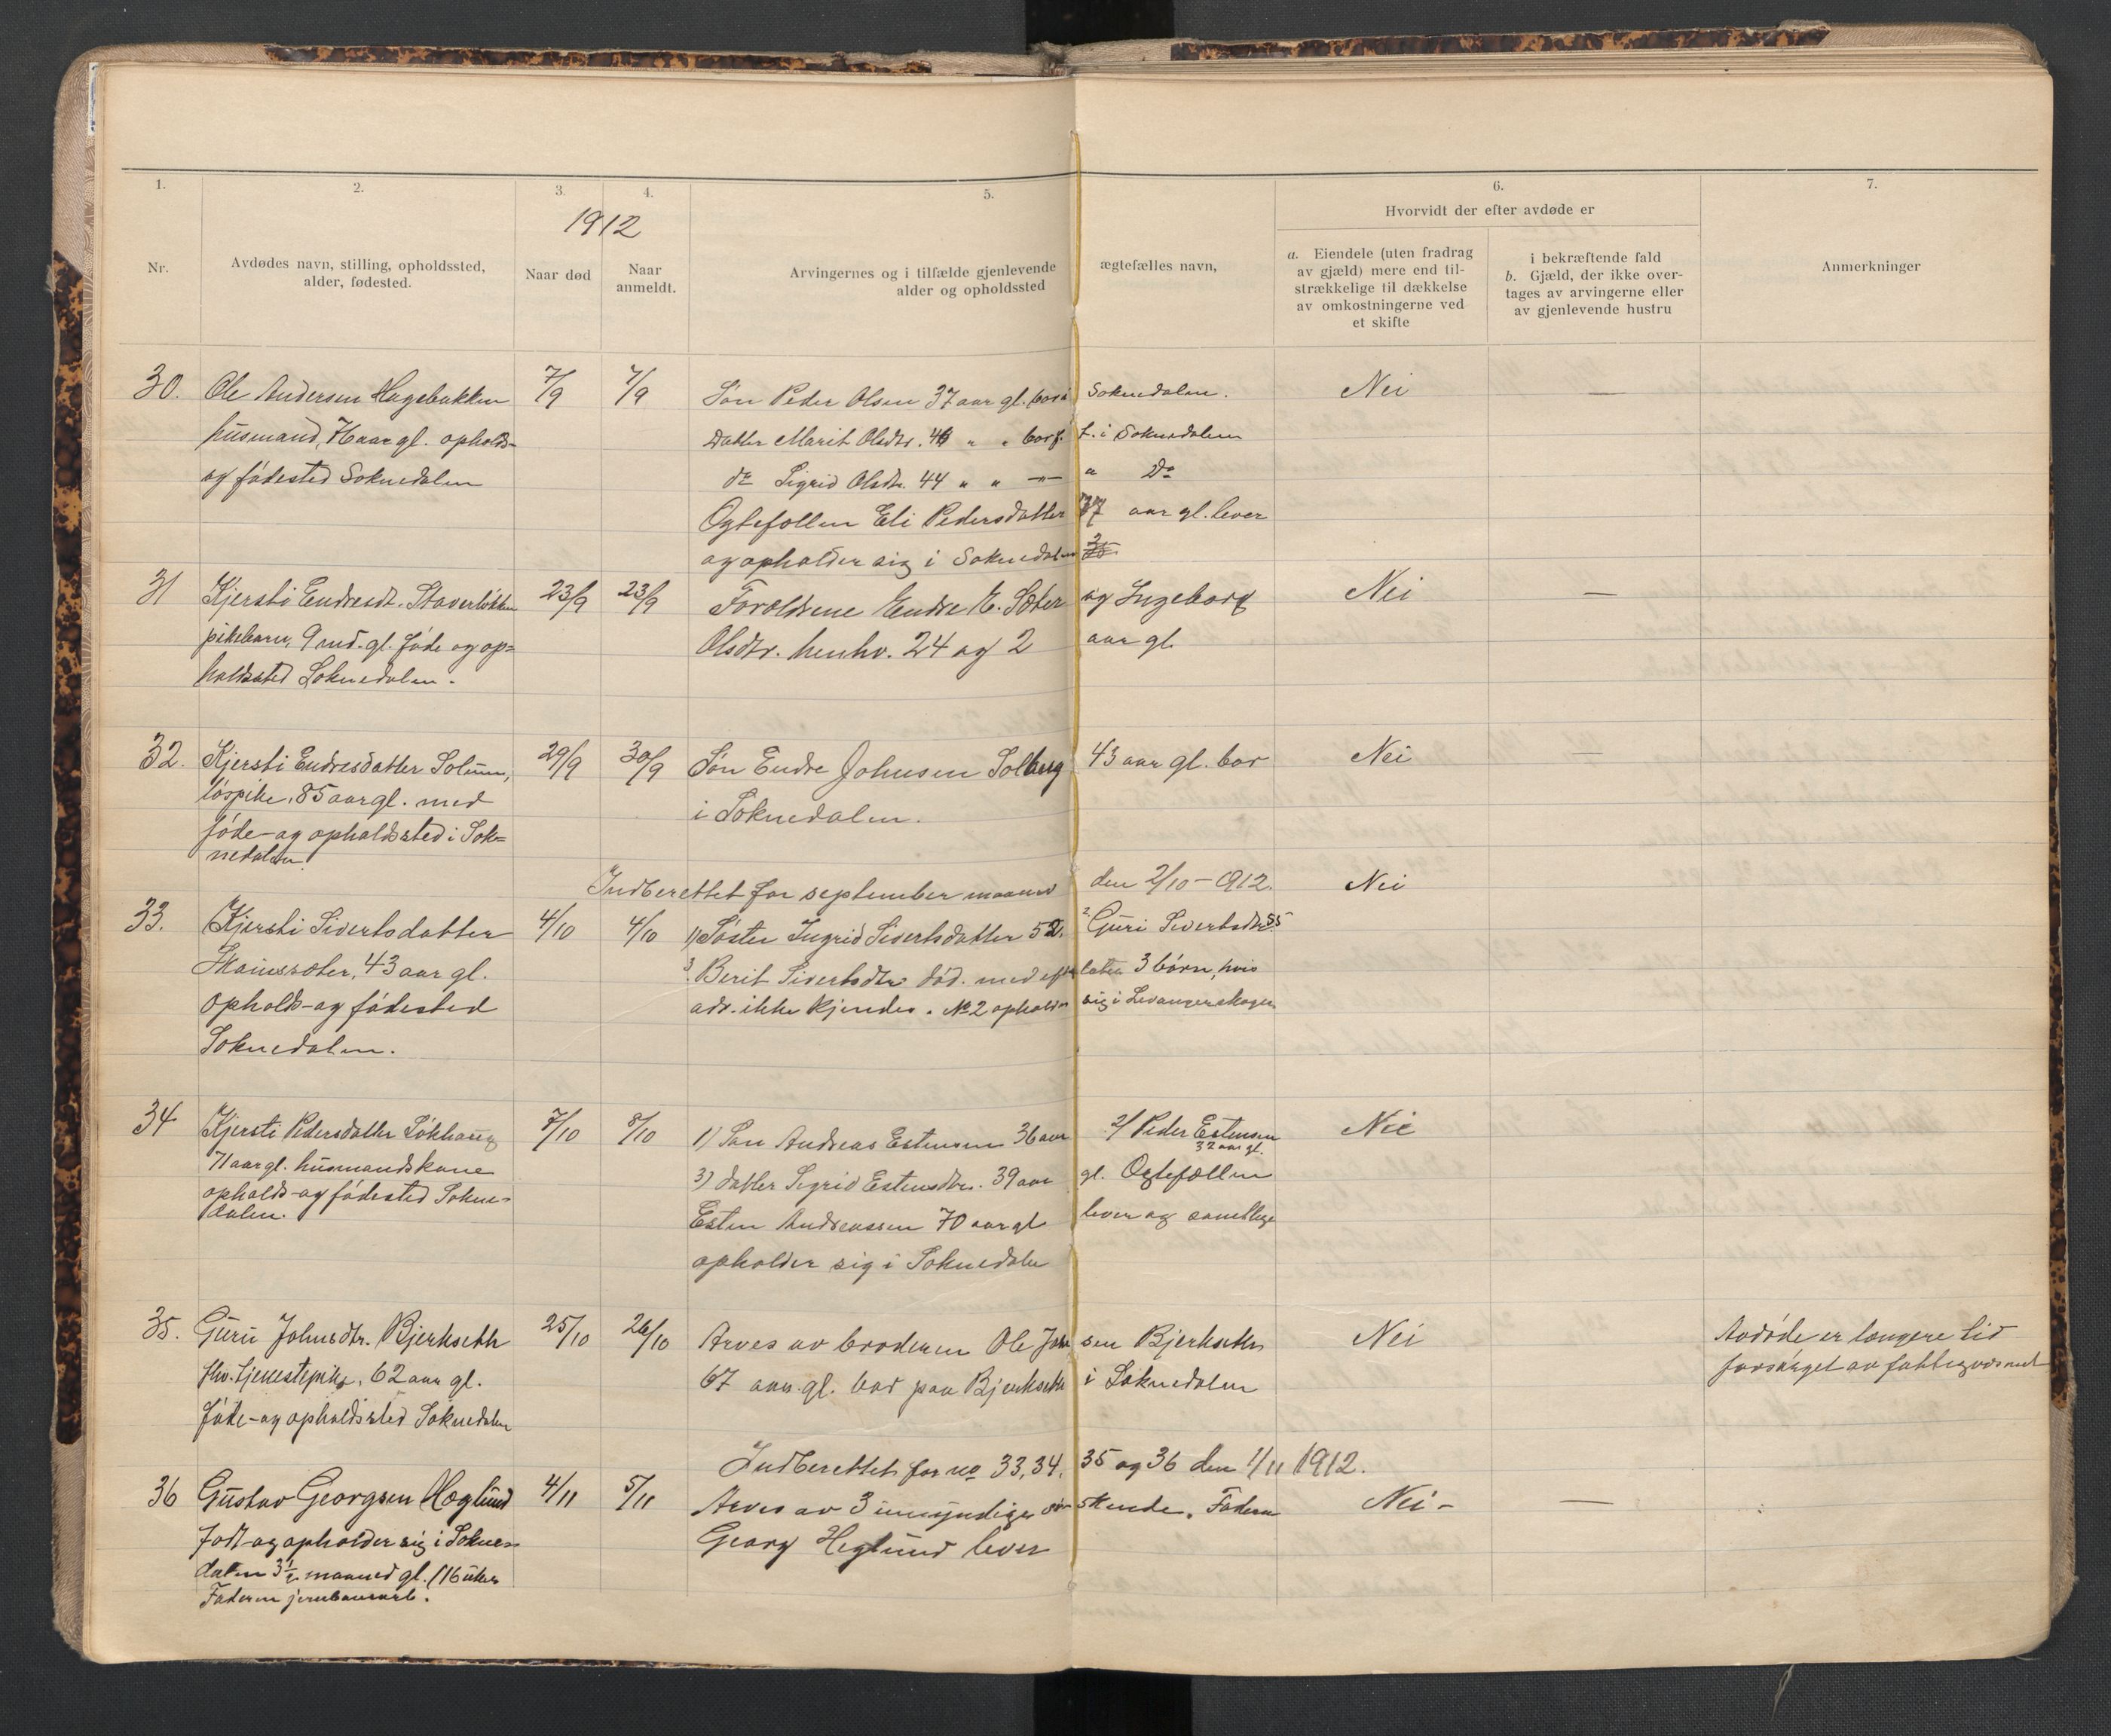 1.
2.
3.
4.
5.
6.
7.
1912
Hvorvidt der efter avdøde er
Nr.
Avdødes navn, stilling, opholdssted,
alder, fødested.
Naar død
Naar
anmeldt.
Arvingernes og i tilfælde gjenlevende ægtefælles navn,
alder og opholdssted
a. Eiendele (uten fradrag
av gjæld) mere end til-
strækkelige til dækkelse
av omkostningerne ved
et skifte
i bekræftende fald
b. Gjæld, der ikke over-
tages av arvingerne eller
av gjenlevende hustru
Anmerkninger
30. Ole Andersen Hagebakken 7/9 7/9 Søn Peder Olsen 37 aar gl. bor i Soknedalen. Nei —
husmand, aar gl. opholds-
og fødested Soknedalen
Datter Marit Olsdtr. " " bor f. t. i Soknedalen
do Sigrid Olsdtr. 44 " " —"— " Do
Ogtefollen Eli Pedersdatter 77 aar gl. lever
og opholder sig i Soknedalen
31 Kjersti Endresdt. Staverløkken 23/9 23/9 Foroldrene Endre E. Sæter og Ingeborg Nei —
pikebarn, 9 md. gl. føde og op=
holdssted Soknedalen.
Olsdtr. henhv. 24 og 2 aar gl.
32. Kjersti Endresdatter Solum, 29/9 30/9 Søn Endre Johnsen Solberg 43 aar gl. bor Nei —
løspike, 85 aar gl. med
føde- og opholdssted i Sok=
nedalen.
i Soknedalen.
Indberettet for september maaned den 2/10-912. Nei
33. Kjersti Sivertsdatter 4/10 4/10 1) Søster Ingrid Sivertsdatter 52. 2. Guri Sivertsdtr. 55
43 aar gl.
Opholds- og fødested
Soknedalen.
3. Berit Sivertsdtr død. med efterlatte 3 børn, hvis
adr. ikke kjendes. No 2 opholder sig i Levangerskogen
34 Kjersti Pedersdatter Løkhaug 7/10 8/10 1) Søn Andreas Estensen 36 aar 2/ Peder Estensen Nei
32 aar gl.
71 aar gl. husmandskone
opholds- og fødested Sokne=
dalen.
3) datter Sigrid Estensdtr. 39 aar gl. Ogtefællen
Esten Andreassen 70 aar gl lever og samtlige
opholder sig i Soknedalen
35. Guru Johnsdtr. Bjerkseth 25/10 26/10 Arves av broderen Ole Johnsen Bjerkseth Nei
fhv. tjenestepike, 62 aar gl.
føde- og opholdssted Soknedalen
67 aar gl. bor paa Bjerkseth i Soknedalen
Avdøde er længere tid
forsørget av fattigvæsenet
Indberettet for no 33, 34, 35 og 36 den 1/11 1912.
36 Gustav Georgsen Høglund 4/11 5/11 Arves av 3 umyndige søskende. Faderen Nei- —
født og opholder sig i Sokne=
dalen 3 1/2 maaned gl. (16 uker
Faderen jernbanearb.
Georg Heglund lever